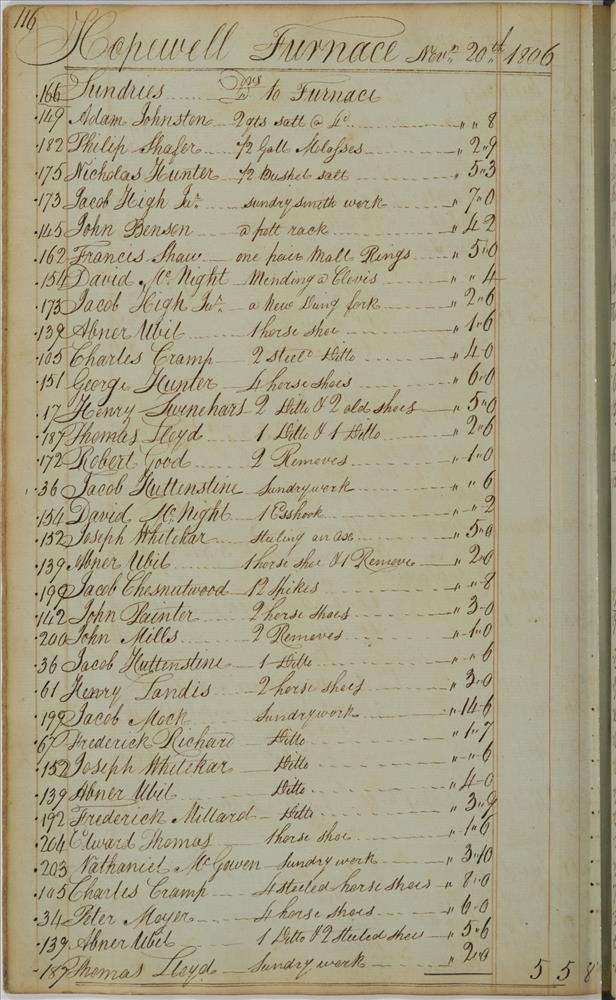 116
Hopewell Furnace Novr. 20th 1806
166 Sundries Drs to Furnace
149 Adam Johnston 2 qts salt @ 4d " " 8
182 Philip Shafer 1/2 Gall Molasses " 2 " 9
175 Nicholas Hunter 1/2 Bushel salt " 5 " 3
173 Jacob High Jur. sundry smith work " 7 " 0
145 John Benson a pott rack " 4 " 2
162 Francis Shaw one pair Mall Rings " 5 " 0
154 David Mc. Night Mending a Clevis " " 4
173 Jacob High Jur. a New Dung fork " 2 " 6
139 Abner Ubil 1 horse shoe " 1 " 6
105 Charles Cramp 2 steeld Ditto " 4 " 0
151 George Hunter 4 horse shoes " 6 " 0
17 Henry Swinehart 2 Ditto & 2 old shoes " 5 " 0
187 Thomas Lloyd 1 Ditto & 1 Ditto " 2 " 6
172 Robert Good 2 Removes " 1 " 0
36 Jacob Huttenstine Sundry work " " 6
154 David Mc. Night 1 Esshook " " 2
152 Joseph Whitekar Steeling an ax " 5 " 0
139 Abner Ubil 1 horse shoe & 1 Remove " 2 " 0
190 Jacob Chesnutwood 12 Spikes " " 8
142 John Painter 2 horse shoes " 3 " 0
200 John Mills 2 Removes " 1 " 0
36 Jacob Huttenstine 1 Ditto " " 6
61 Henry Landis 2 horse shoes " 3 " 0
199 Jacob Mock Sundry work " 14 " 6
67 Frederick Richard Ditto " 1 " 7
152 Joseph Whitekar Ditto " " 6
139 Abner Ubil Ditto " 4 " 0
192 Frederick Millard Ditto " 3 " 9
204 Edward Thomas 1 horse shoe " 1 " 6
203 Nathaniel Mc Gowen Sundry work " 3 " 10
105 Charles Cramp 4 steeled horse shoes " 8 " 0
34 Peter Moyer 4 horse shoes " 6 " 0
139 Abner Ubil 1 Ditto & 2 steeled shoes " 5 " 6
187 Thomas Lloyd Sundry work " 2 " 0 5 5 8